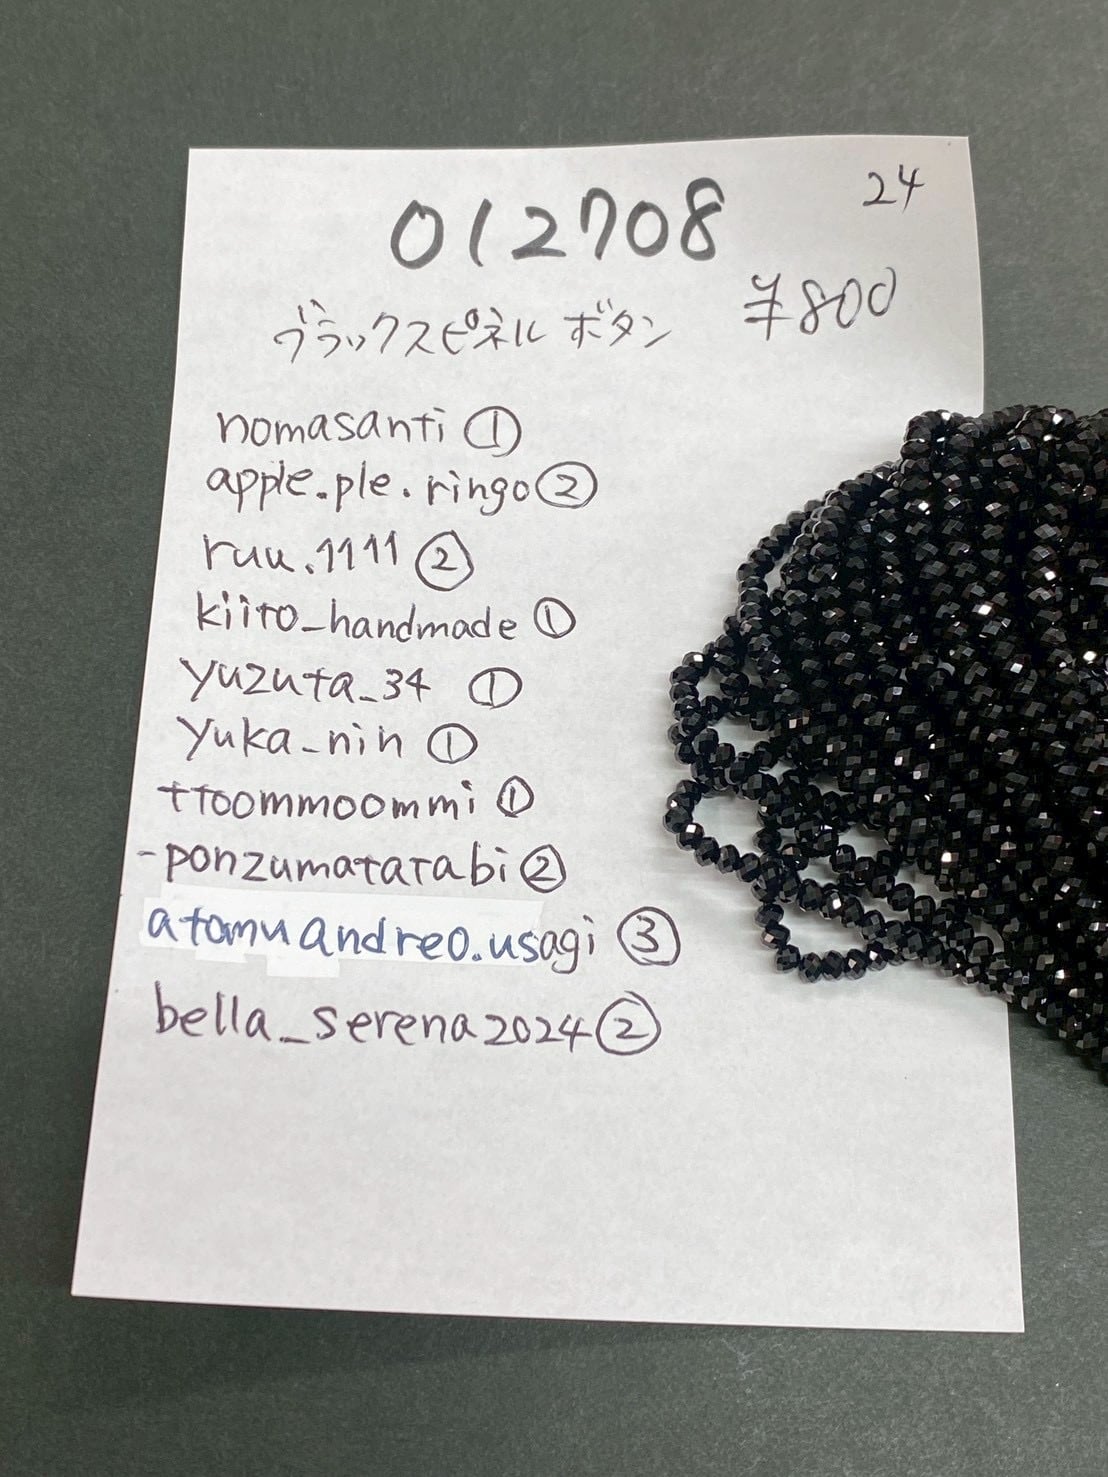 24
012708
ブラックスピネル ボタン ¥800
nomasanti ①
apple.ple.ringo ②
ruu.1111 ②
kiito_handmade ①
yuzuta_34 ①
yuka_nin ①
ttoommoommi ①
-ponzumatatabi ②
atomuandreo.usagi ③
bella_serena2024 ②